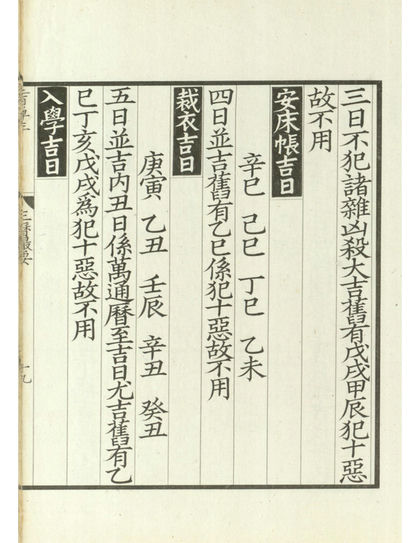 三日不犯諸雜凶殺大吉舊有戊戌甲辰犯十惡
故不用
安床帳吉日
辛巳 己巳 丁巳 乙未
四日並吉舊有乙巳係犯十惡故不用
裁衣吉日
庚寅 乙丑 壬辰 辛丑 癸丑
五日並吉内丑日係萬通曆至吉日尤吉舊有乙
巳丁亥戊戌爲犯十惡故不用
入學吉日